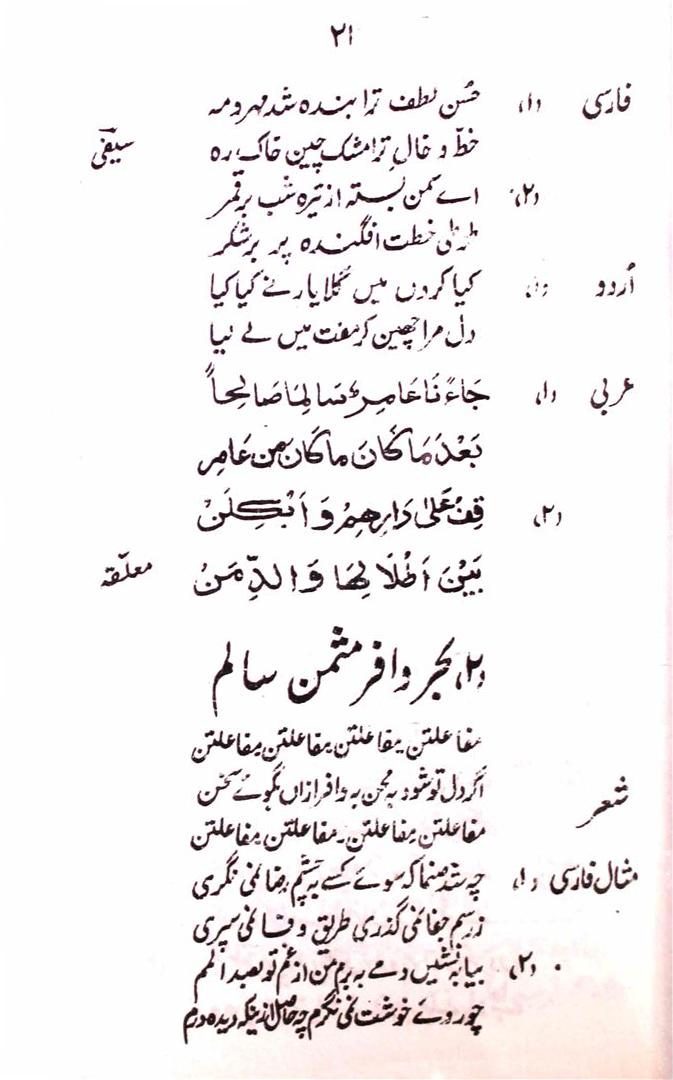 ۲۱
فارسی (۱) حُسن لطف ترا بندہ شد مہر و مہ
خطّ و خالِ ترا مشک چین خاک رہ سیفیؔ
(۲) اے سمن بستہ از تیرہ شب بر قمر
طوطی خطت افگندہ پر بر شکر
اُردو (۱) کیا کروں میں گلا یار نے کیا کیا
دل مرا چھین کر مفت میں لے لیا
عربی (۱) جَاءَنَا عَامِرٌ سَالِمًا صَالِحاً
بَعْدَ مَا كَانَ مَا كَانَ مِن عَامِرِ
(۲) قِفْ عَلىٰ دَارِهِمْ وَ ابْكِيَنْ
بَيْنَ اَطْلَالِهَا وَالدِّمَنْ معلّقہ
(۲) بحر وافر مثمن سالم
مفاعلتن مفاعلتن مفاعلتن مفاعلتن
شعر اگر دل تو شود بہ محن بہ وافر ازاں بگوئے سخن
مفاعلتن مفاعلتن ۔ مفاعلتن مفاعلتن
مثال فارسی (۱) چہ شد صنما کہ سوئے کسے بہ چشم رضا نمی نگری
ز رسم جفا نمی گذری طریق وفا نمی سپری
(۲) بیا بنشیں دمے بہ برم من از غم تو بصد المم
چو روئے خوشت نمی نگرم چہ حاصل ازینکہ دیدہ ورم